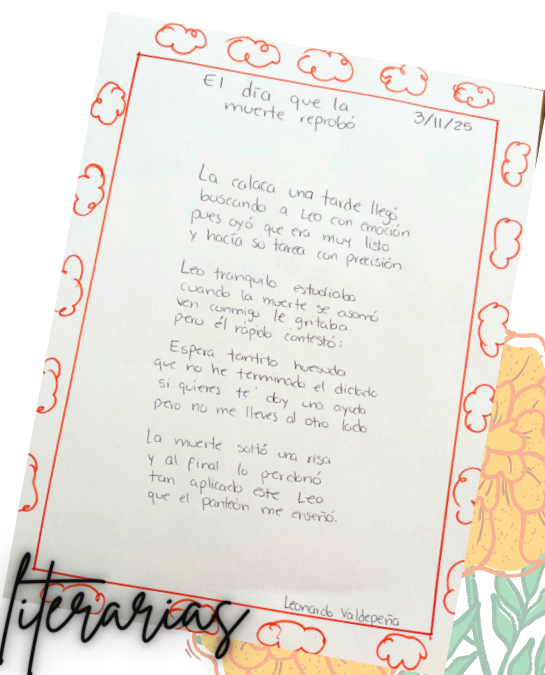 El día que la
muerte reprobó
3/11/25
La calaca una tarde llegó
buscando a Leo con emoción
pues oyó que era muy listo
y hacía su tarea con precisión
Leo tranquilo estudiaba
cuando la muerte se asomó
ven conmigo le gritaba
pero él rápido contestó:
Espera tantito huesuda
que no he terminado el dictado
si quieres te doy una ayuda
pero no me lleves al otro lado
La muerte soltó una risa
y al final lo perdonó
tan aplicado este Leo
que el panteón me enseñó.
Leonardo Valdepeña
literarias